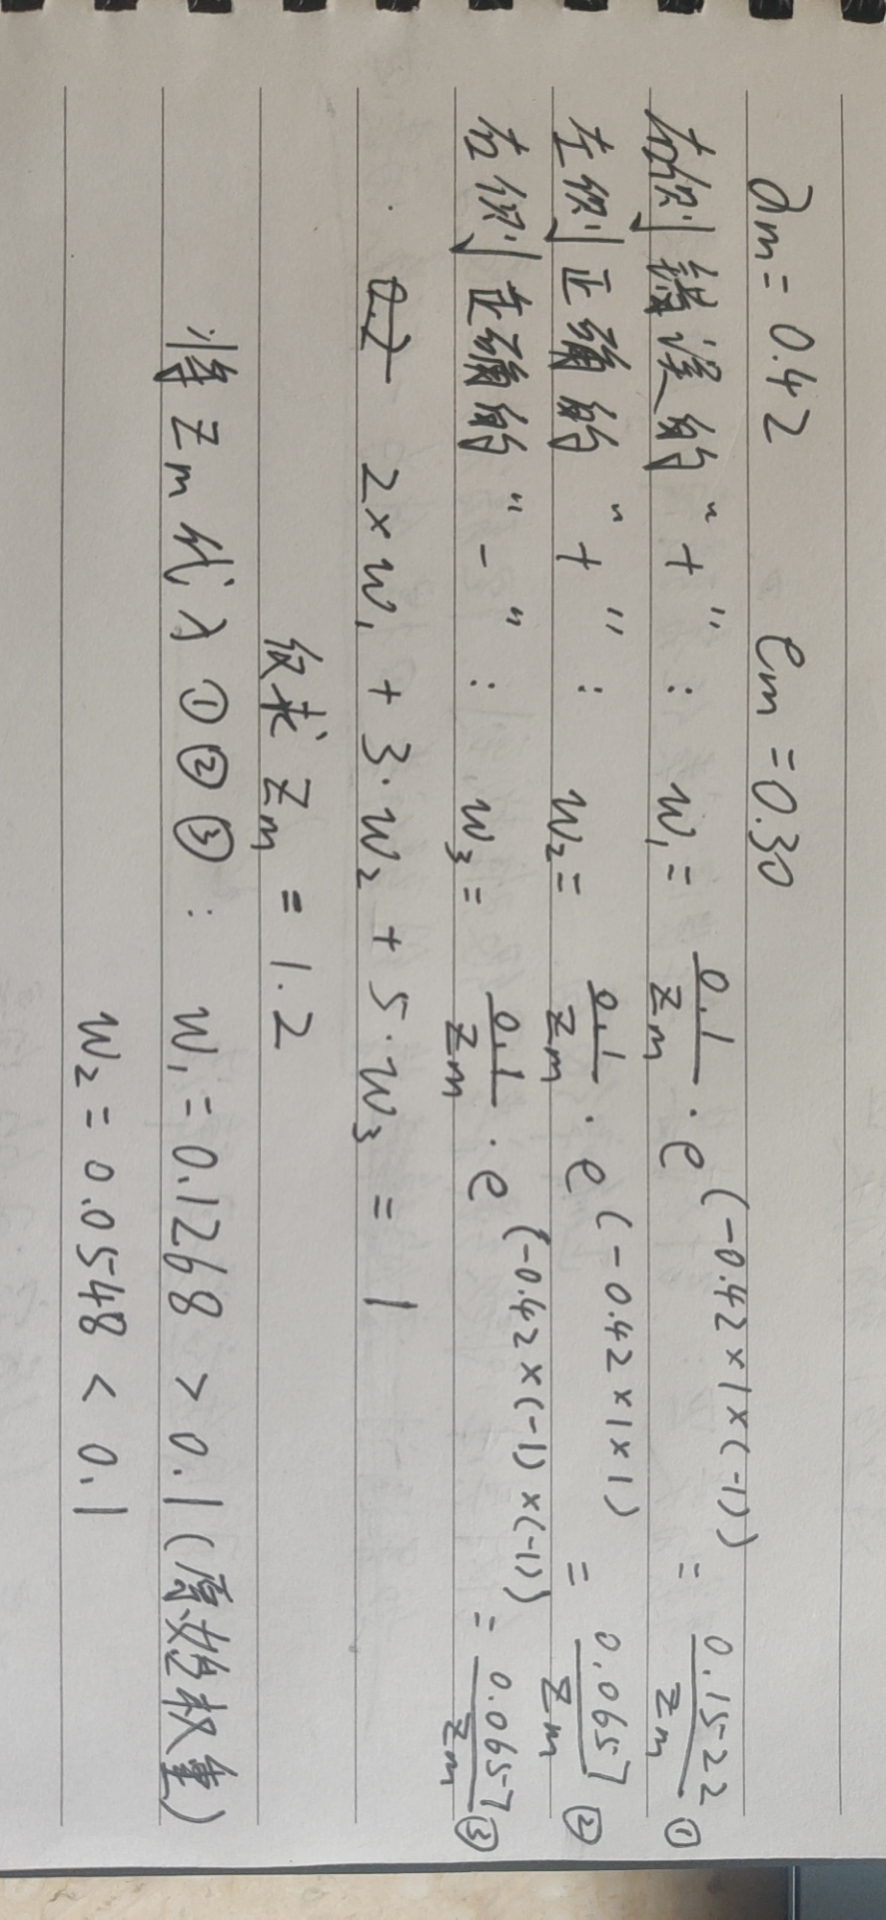 ∂m = 0.42 em = 0.30
右侧错误的 "+" : w₁ = 0.1/zm · e^(-0.42×1×(-1)) = 0.1522/zm ①
左侧正确的 "+" : w₂ = 0.1/zm · e^(-0.42×1×1) = 0.0657/zm ②
右侧正确的 "-" : w₃ = 0.1/zm · e^(-0.42×(-1)×(-1)) = 0.0657/zm ③
2×w₁ + 3·w₂ + 5·w₃ = 1
zm = 1.2
将zm代入①②③ : w₁ = 0.1268 > 0.1(原始权重)
w₂ = 0.0548 < 0.1